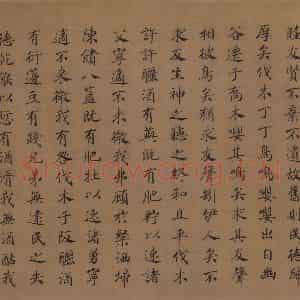 睦友賢不棄不遺故舊則民德歸
厚矣伐木丁丁鳥鳴嚶嚶出自幽
谷遷于喬木嚶其鳴矣求其友聲
相彼鳥矣猶求友聲矧伊人矣不
求友生神之聽之終和且平伐木
許許釃酒有藇既有肥羜以速諸
父寧適不來微我弗顧於粲洒埽
陳饋八簋既有肥牡以速諸舅寧
適不來微我有咎伐木于阪釃酒
有衍籩豆有踐兄弟無遠民之失
德乾餱以愆有酒湑我無酒酤我